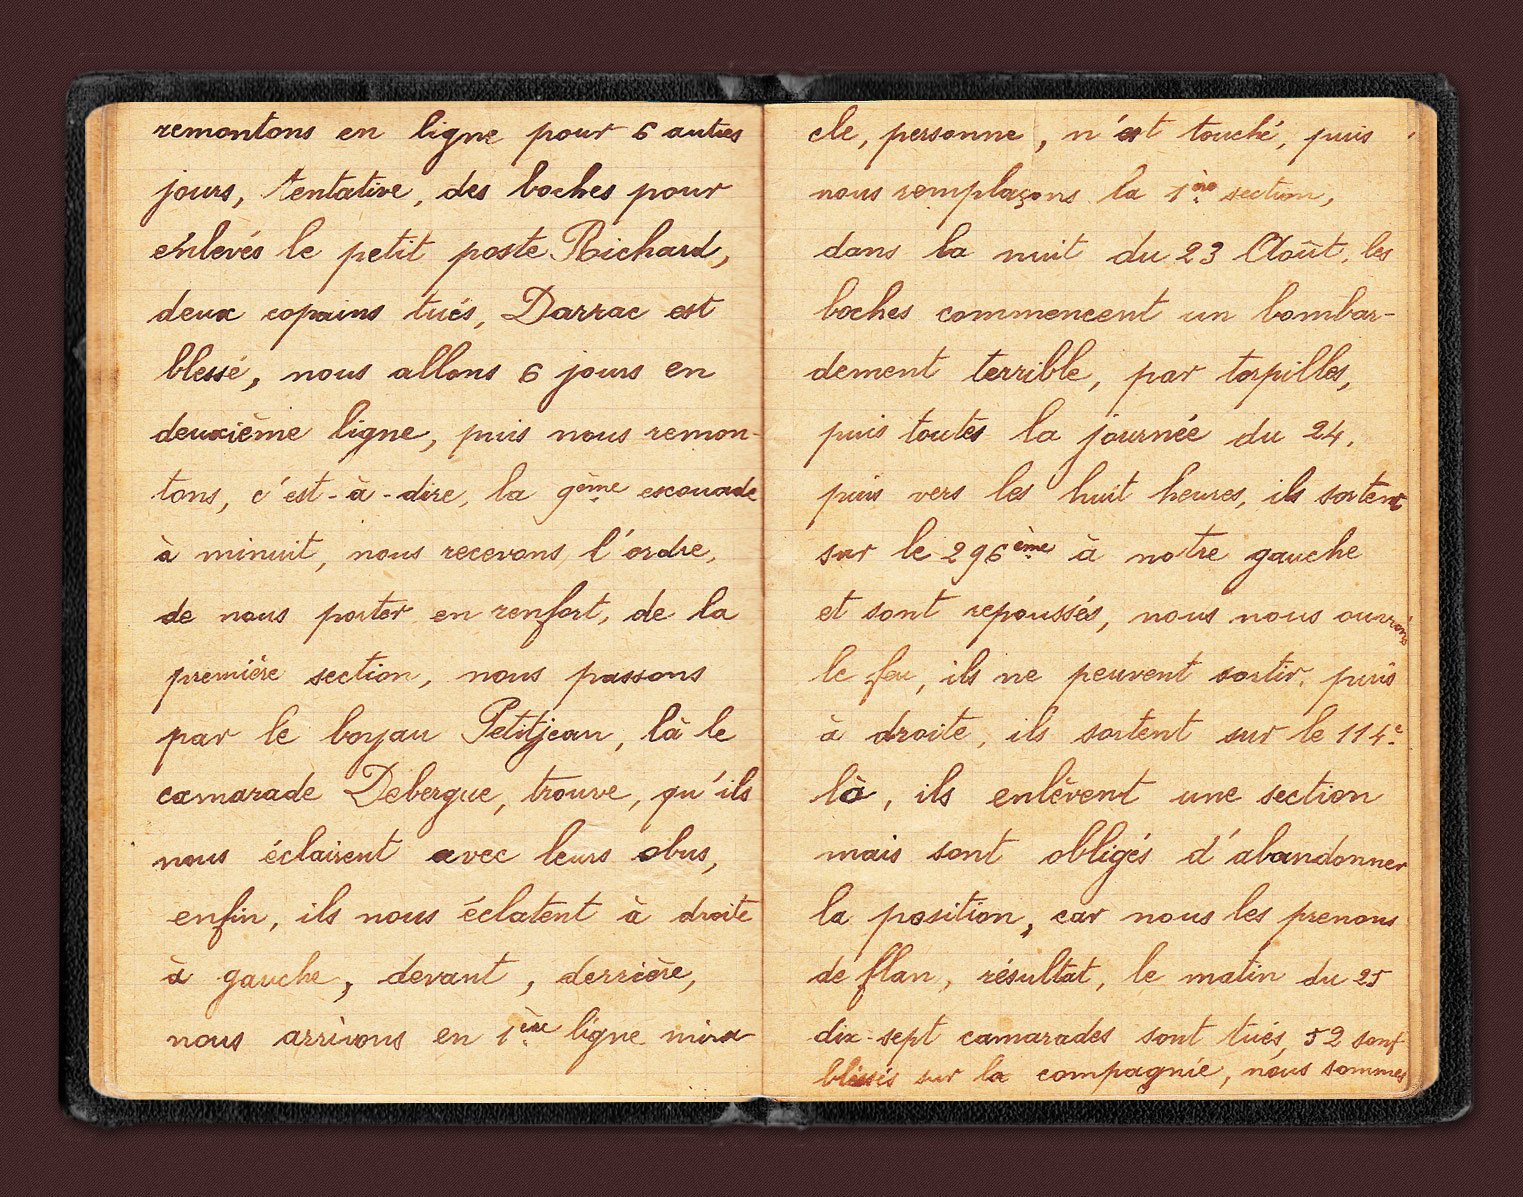 remontons en ligne pour 6 autres
jours, tentative, des boches pour
enlevés le petit poste Richard,
deux copains tués, Darrac est
blessé, nous allons 6 jours en
deuxième ligne, puis nous remon-
tons, c'est-à-dire, la 9ème escouade
à minuit, nous recevons l'ordre,
de nous porter en renfort, de la
première section, nous passons
par le boyau Petitjean, là le
camarade Debergue, trouve, qu'ils
nous éclairent avec leurs obus,
enfin, ils nous éclatent à droite
à gauche, devant, derrière,
nous arrivons en 1ère ligne mira
cle, personne, n'est touché, puis
nous remplaçons la 1ère section,
dans la nuit du 23 Août, les
boches commencent un bombar-
dement terrible, par torpilles,
puis toutes la journée du 24,
puis vers les huit heures, ils sortent
sur le 296ème à notre gauche
et sont repoussés, nous nous ouvrons
le feu, ils ne peuvent sortir, puis
à droite, ils sortent sur le 114e.
là, ils enlèvent une section
mais sont obligés d'abandonner
la position, car nous les prenons
de flan, résultat, le matin du 25
dix-sept camarades sont tués, 52 sont
blessés sur la compagnie, nous sommes